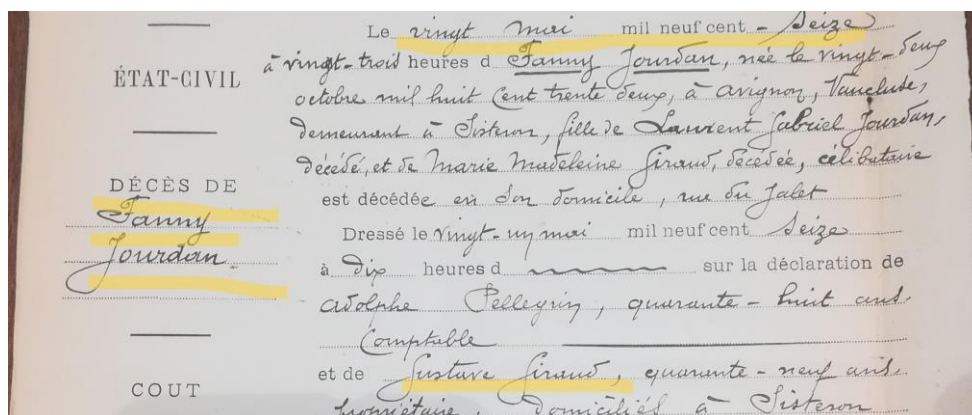 ÉTAT-CIVIL
DÉCÈS DE
Fanny
Jourdan
COUT
Le vingt mai mil neuf cent - Seize
à vingt-trois heures d Fanny Jourdan, née le vingt-deux
octobre mil huit cent trente deux, à avignon, Vaucluse,
demeurant à Sisteron, fille de Laurent Gabriel Jourdan,
décédé, et de Marie Madeleine Giraud, décédée, célibataire
est décédée en son domicile, rue du Jalet
Dressé le vingt-un mai mil neuf cent Seize
à Dix heures d sur la déclaration de
adolphe Pellegrin, quarante-huit ans.
Comptable
et de Gustave Giraud, quarante-neuf ans.
propriétaire, Domiciliés à Sisteron